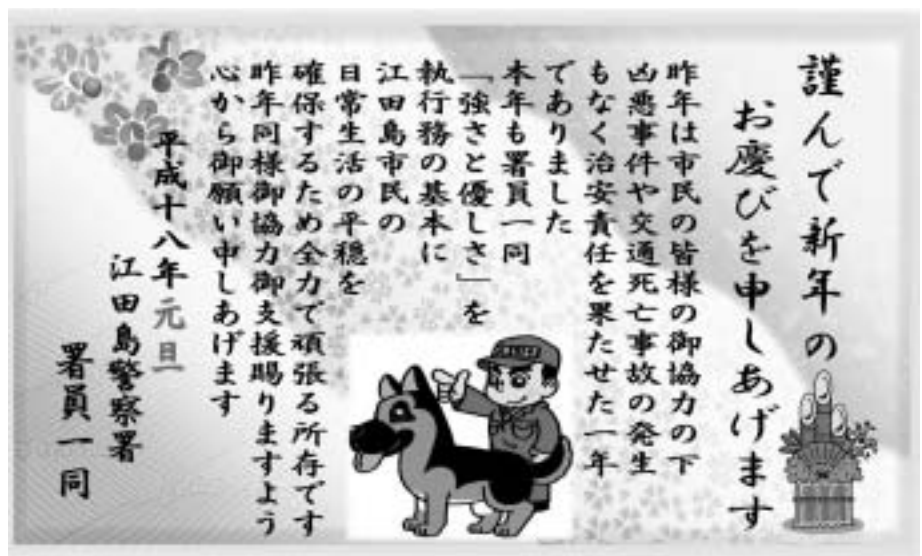 謹んで新年の
お慶びを申しあげます
昨年は市民の皆様の御協力の下
凶悪事件や交通死亡事故の発生
もなく治安責任を果たせた一年
でありました
本年も署員一同
「強さと優しさ」を
執行務の基本に
江田島市民の
日常生活の平穏を
確保するため全力で頑張る所存です
昨年同様御協力御支援賜りますよう
心から御願い申しあげます
平成十八年元旦
江田島警察署
署員一同